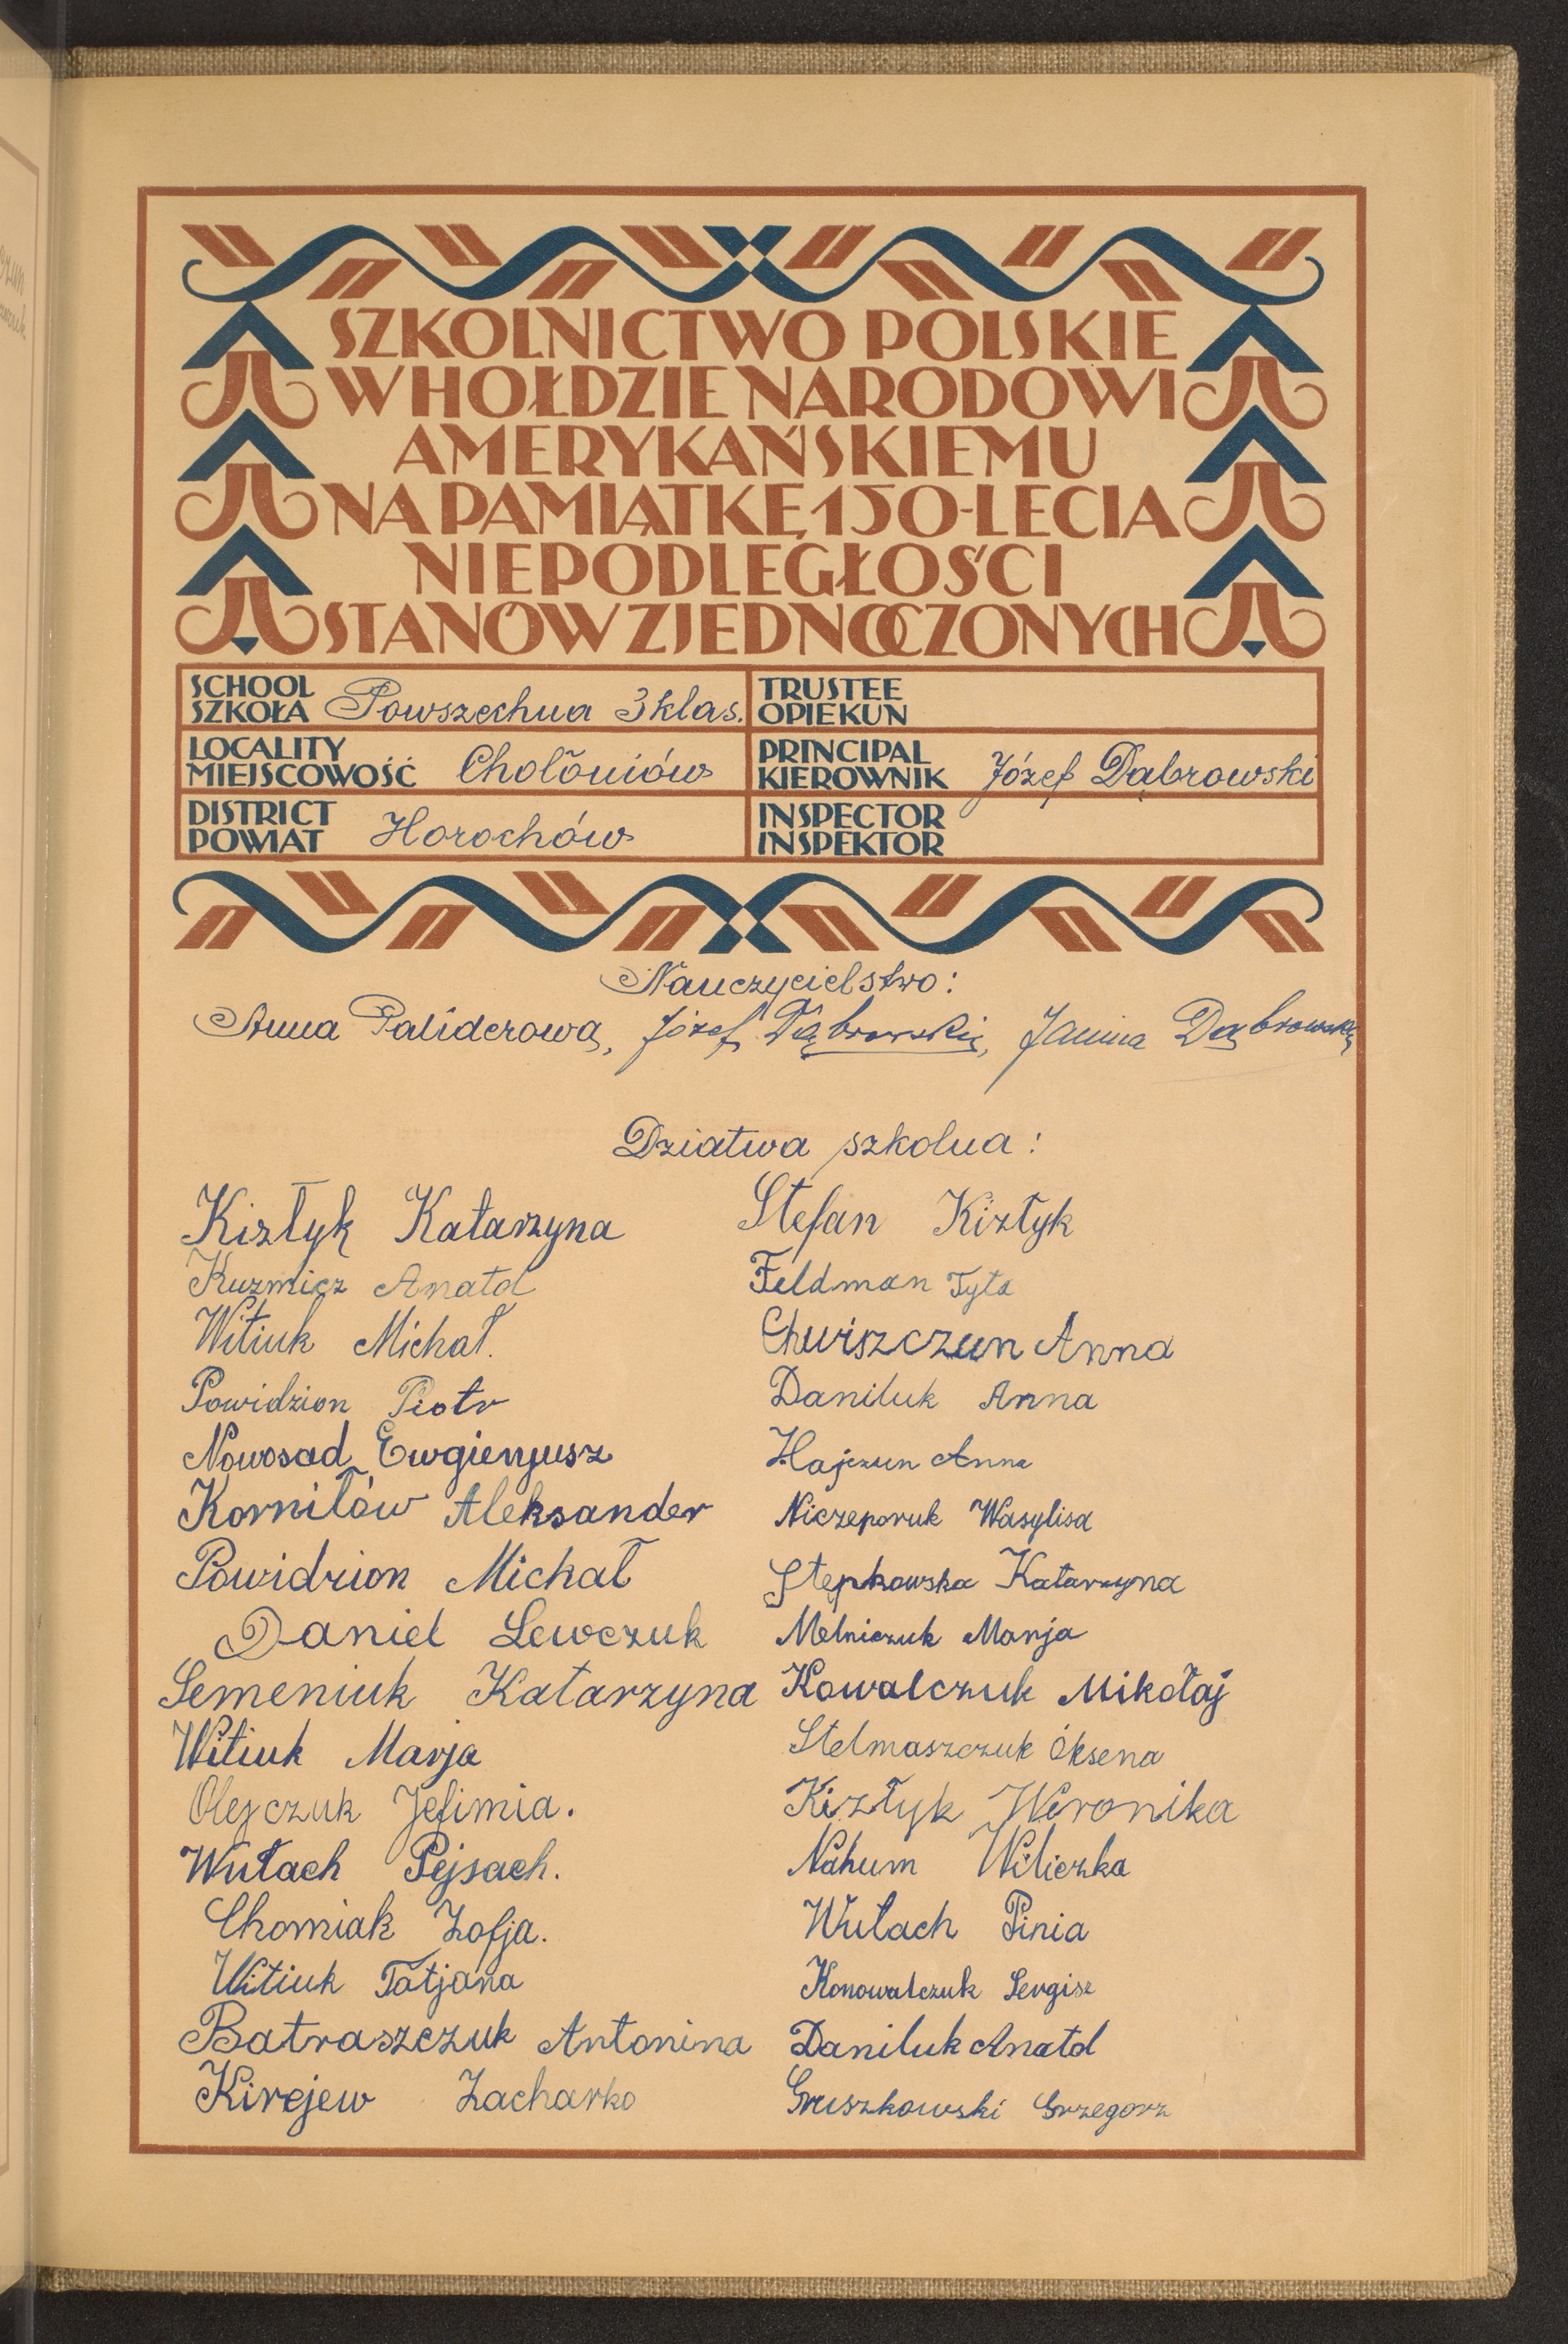 SZKOLNICTWO POLSKIE
W HOŁDZIE NARODOWI
AMERYKAŃSKIEMU
NA PAMIĄTKĘ 150-LECIA
NIEPODLEGŁOŚCI
STANÓW ZJEDNOCZONYCH
SCHOOL
SZKOŁA Powszechna 3 klas.
TRUSTEE
OPIEKUN
LOCALITY
MIEJSCOWOŚĆ Chołoniów
PRINCIPAL
KIEROWNIK Józef Dąbrowski
DISTRICT
POWIAT Horochów
INSPECTOR
INSPEKTOR
Nauczycielstwo:
Anna Paliderowa, Józef Dąbrowski, Janina Dąbrowska
Dziatwa szkolna:
Kizłyk Katarzyna
Kuzmicz Anatol
Witiuk Michał.
Powidzion Piotr
Nowosad Ewgienjusz
Korniłów Aleksander
Powidzion Michał
Daniel Lewczuk
Semeniuk Katarzyna
Witiuk Marja
Olejczuk Jefimia.
Wułach Pejsach.
Chomiak Zofja.
Witiuk Tatjana
Batraszczuk Antonina
Kirejew Zacharko
Stefan Kizłyk
Feldman Tyla
Chwiszczun Anna
Daniluk Anna
Hajczun Anna
Niczeporuk Wasylisa
Stępkowska Katarzyna
Melniczuk Marja
Kowalczuk Mikołaj
Stelmaszczuk Oksena
Kizłyk Weronika
Nahum Wiliczka
Wułach Pinia
Konowalczuk Sergisz
Daniluk Anatol
Gruszkowski Grzegorz